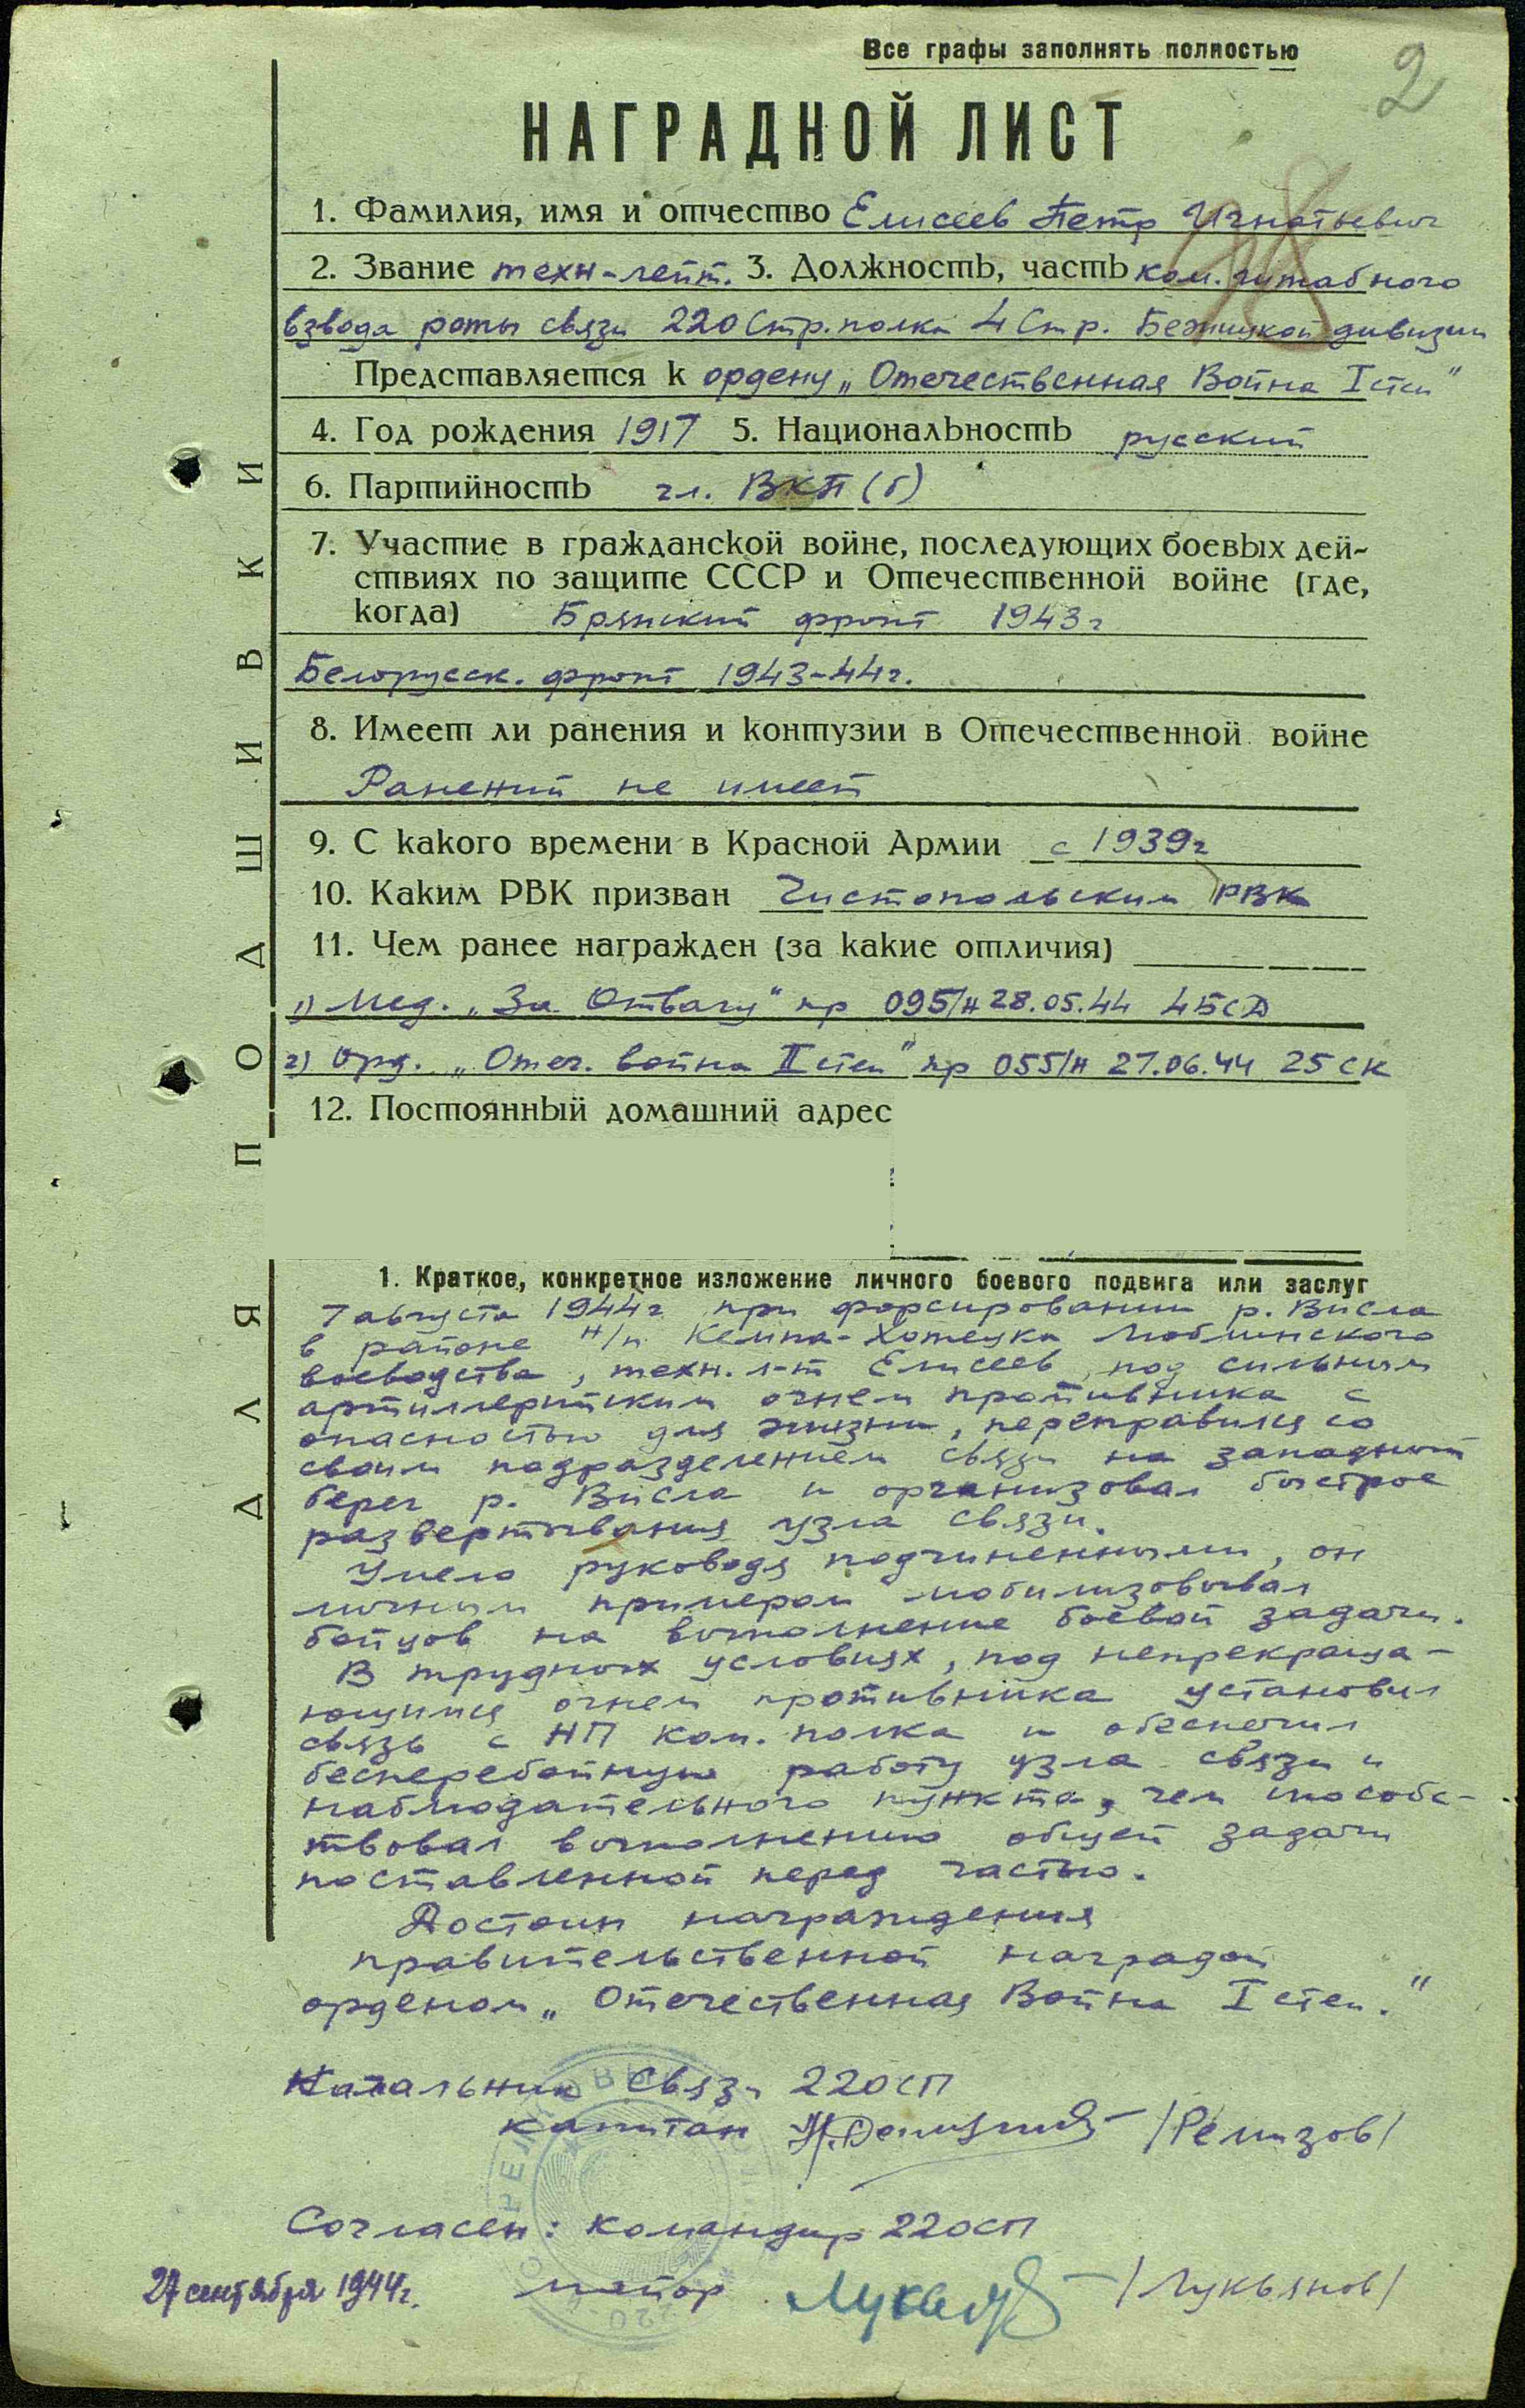 Все графы заполнять полностью
2
НАГРАДНОЙ ЛИСТ
1. Фамилия, имя и отчество Елисеев Петр Игнатьевич
2. Звание техн-лейт. 3. Должность, часть ком. штабного
взвода роты связи 220 Стр. полка 4 Стр. Бежицкой дивизии
Представляется к ордену „Отечественная Война I степ"
4. Год рождения 1917 5. Национальность русский
6. Партийность чл. ВКП(б)
7. Участие в гражданской войне, последующих боевых дей-
ствиях по защите СССР и Отечественной войне (где,
когда) Брянский фронт 1943г
Белорусск. фронт 1943-44г.
8. Имеет ли ранения и контузии в Отечественной войне
Ранений не имеет
9. С какого времени в Красной Армии с 1939г
10. Каким РВК призван Чистопольским РВК
11. Чем ранее награжден (за какие отличия)
1) Мед. „За Отвагу" пр 095/н 28.05.44 4БСД
2) Орд. „Отеч. война II степ" пр 055/н 27.06.44 25 СК
12. Постоянный домашний адрес
1. Краткое, конкретное изложение личного боевого подвига или заслуг
7 августа 1944г при форсировании р. Висла
в районе н/п. Кемпа-Хотецка Люблинского
воеводства, техн. л-т Елисеев, под сильным
артиллерийским огнем противника с
опасностью для жизни, переправился со
своим подразделением связи на западный
берег р. Висла и организовал быстрое
развертывания узла связи.
Умело руководя подчиненными, он
личным примером мобилизовывал
бойцов на выполнение боевой задачи.
В трудных условиях, под непрекраща-
ющимся огнем противника установил
связь с НП ком. полка и обеспечил
бесперебойную работу узла связи и
наблюдательного пункта, чем способс-
твовал выполнению общей задачи
поставленной перед частью.
Достоин награждения
правительственной наградой
орденом „Отечественная Война I степ."
Начальник Связи 220 СП
капитан /Ремизов/
Согласен: командир 220СП
27 сентября 1944г. майор /Лукьянов/
ДЛЯ ПОДШИВКИ